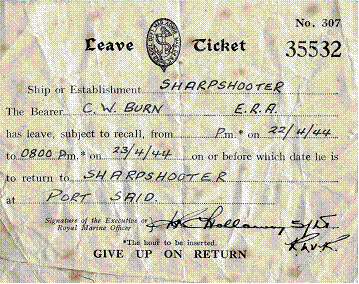 No. 307
Leave Ticket
35532
Ship or Establishment SHARPSHOOTER
The Bearer C. W. BURN E.R.A.
has leave, subject to recall, from Pm.* on 22/4/44
to 0800 Pm.* on 23/4/44 on or before which date he is
to return to SHARPSHOOTER
at PORT SAID.
Signature of the Executive or
Royal Marine Officer
Holloway S/Lt.
R.N.V.R.
*The hour to be inserted.
GIVE UP ON RETURN